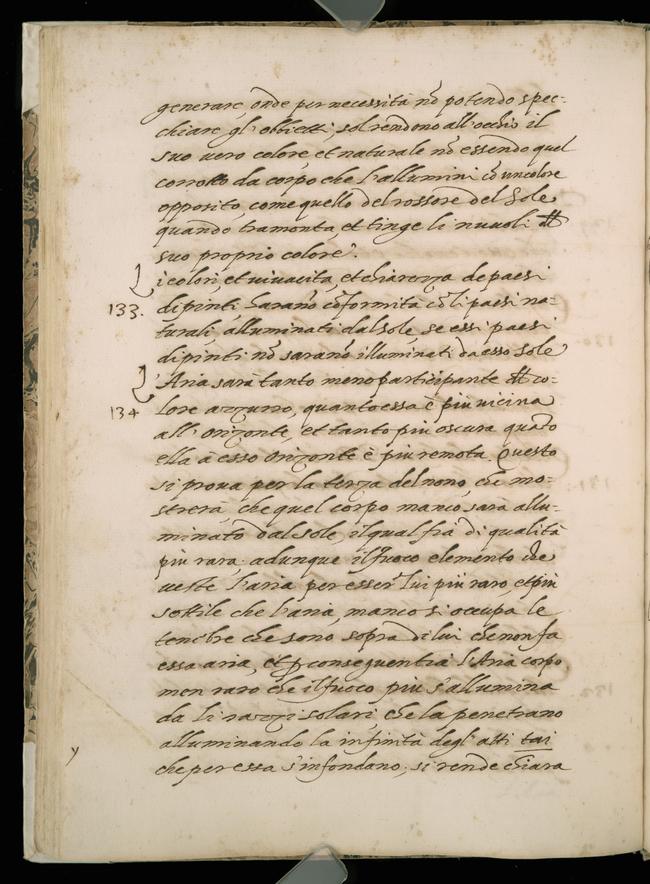 generare, onde per necessità nō potendo spec-
chiare gl'obbietti, sol rendono all'occhio il
suo uero colore, et naturale nō essendo quel
corrotto da corpo che l'allumini cō un colore
opposito, come quello del rossore del Sole
quando tramonta, et tinge li nuuoli
suo proprio colore.
i colori, et viuacita, et chiarezza de paesi
133. dipinti harano cōformità cō li paesi na-
turali, alluminati dal sole, se essi paesi
dipinti nō sarano illuminati da esso sole
L'Aria sarà tanto meno participante co-
134 lore azzurro, quanto essa è piu uicina
all'orizonte, et tanto piu oscura quādo
ella à esso orizonte è piu remota. Questo
si proua per la terza del nono, che mo-
strerà, che quel corpo manco sara allu-
minato dal sole, il qual fia di qualità
piu rara. adunque il fuoco elemento che
ueste l'aria per esser lui piu raro, et piu
sottile che l'aria, manco si occupa le
tenebre che sono sopra di lui che non fa
essa aria, et p conseguentia l'Aria corpo
men raro che il fuoco piu s'allumina
da li razzi solari, che la penetrano
alluminando la infinità degl'atti tai
che per essa s'infondano, si rende chiara